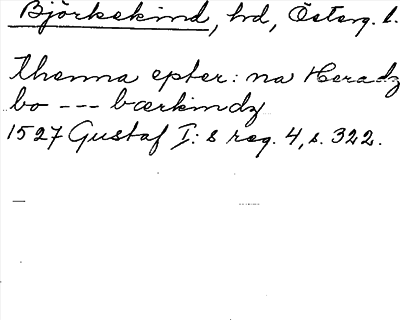 Björkekind, hd, Österg. l.
thenna epter: na Heradz
bo --- bærkindz
1527 Gustaf I: s reg. 4, s. 322.